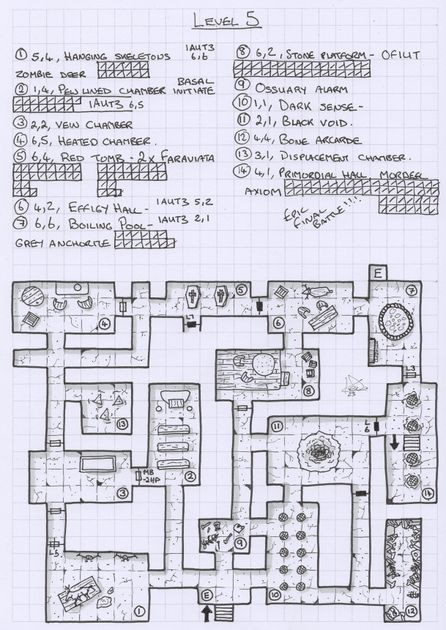 LEVEL 5
① 5,4, HANGING SKELETONS 1AUT3 6,6
ZOMBIE DEER
② 1,4, PEW LINED CHAMBER BASAL INITIATE
1AUT3 6,5
③ 2,2, VEIN CHAMBER
④ 6,5, HEATED CHAMBER.
⑤ 6,4, RED TOMB - 2x FARAVIATA
⑥ 4,2, EFFIGY HALL - 1AUT3 5,2
⑦ 6,6, BOILING POOL - 1AUT3 2,1
GREY ANCHORTILE
⑧ 6,2, STONE PLATFORM - OFIUT
⑨ OSSUARY ALARM
⑩ 1,1, DARK SENSE -
⑪ 2,1, BLACK VOID.
⑫ 4,4, BONE ARCARDE
⑬ 3,1, DISPLACEMENT CHAMBER.
⑭ 4,1, PRIMORDIAL HALL MORDER
AXIOM
EPIC
FINAL
BATTLE!!!!
E
5
7
4
L1
6
8
L3
13
2
11
L6
3
MB
-2HP
14
L5
9
1
E
10
12